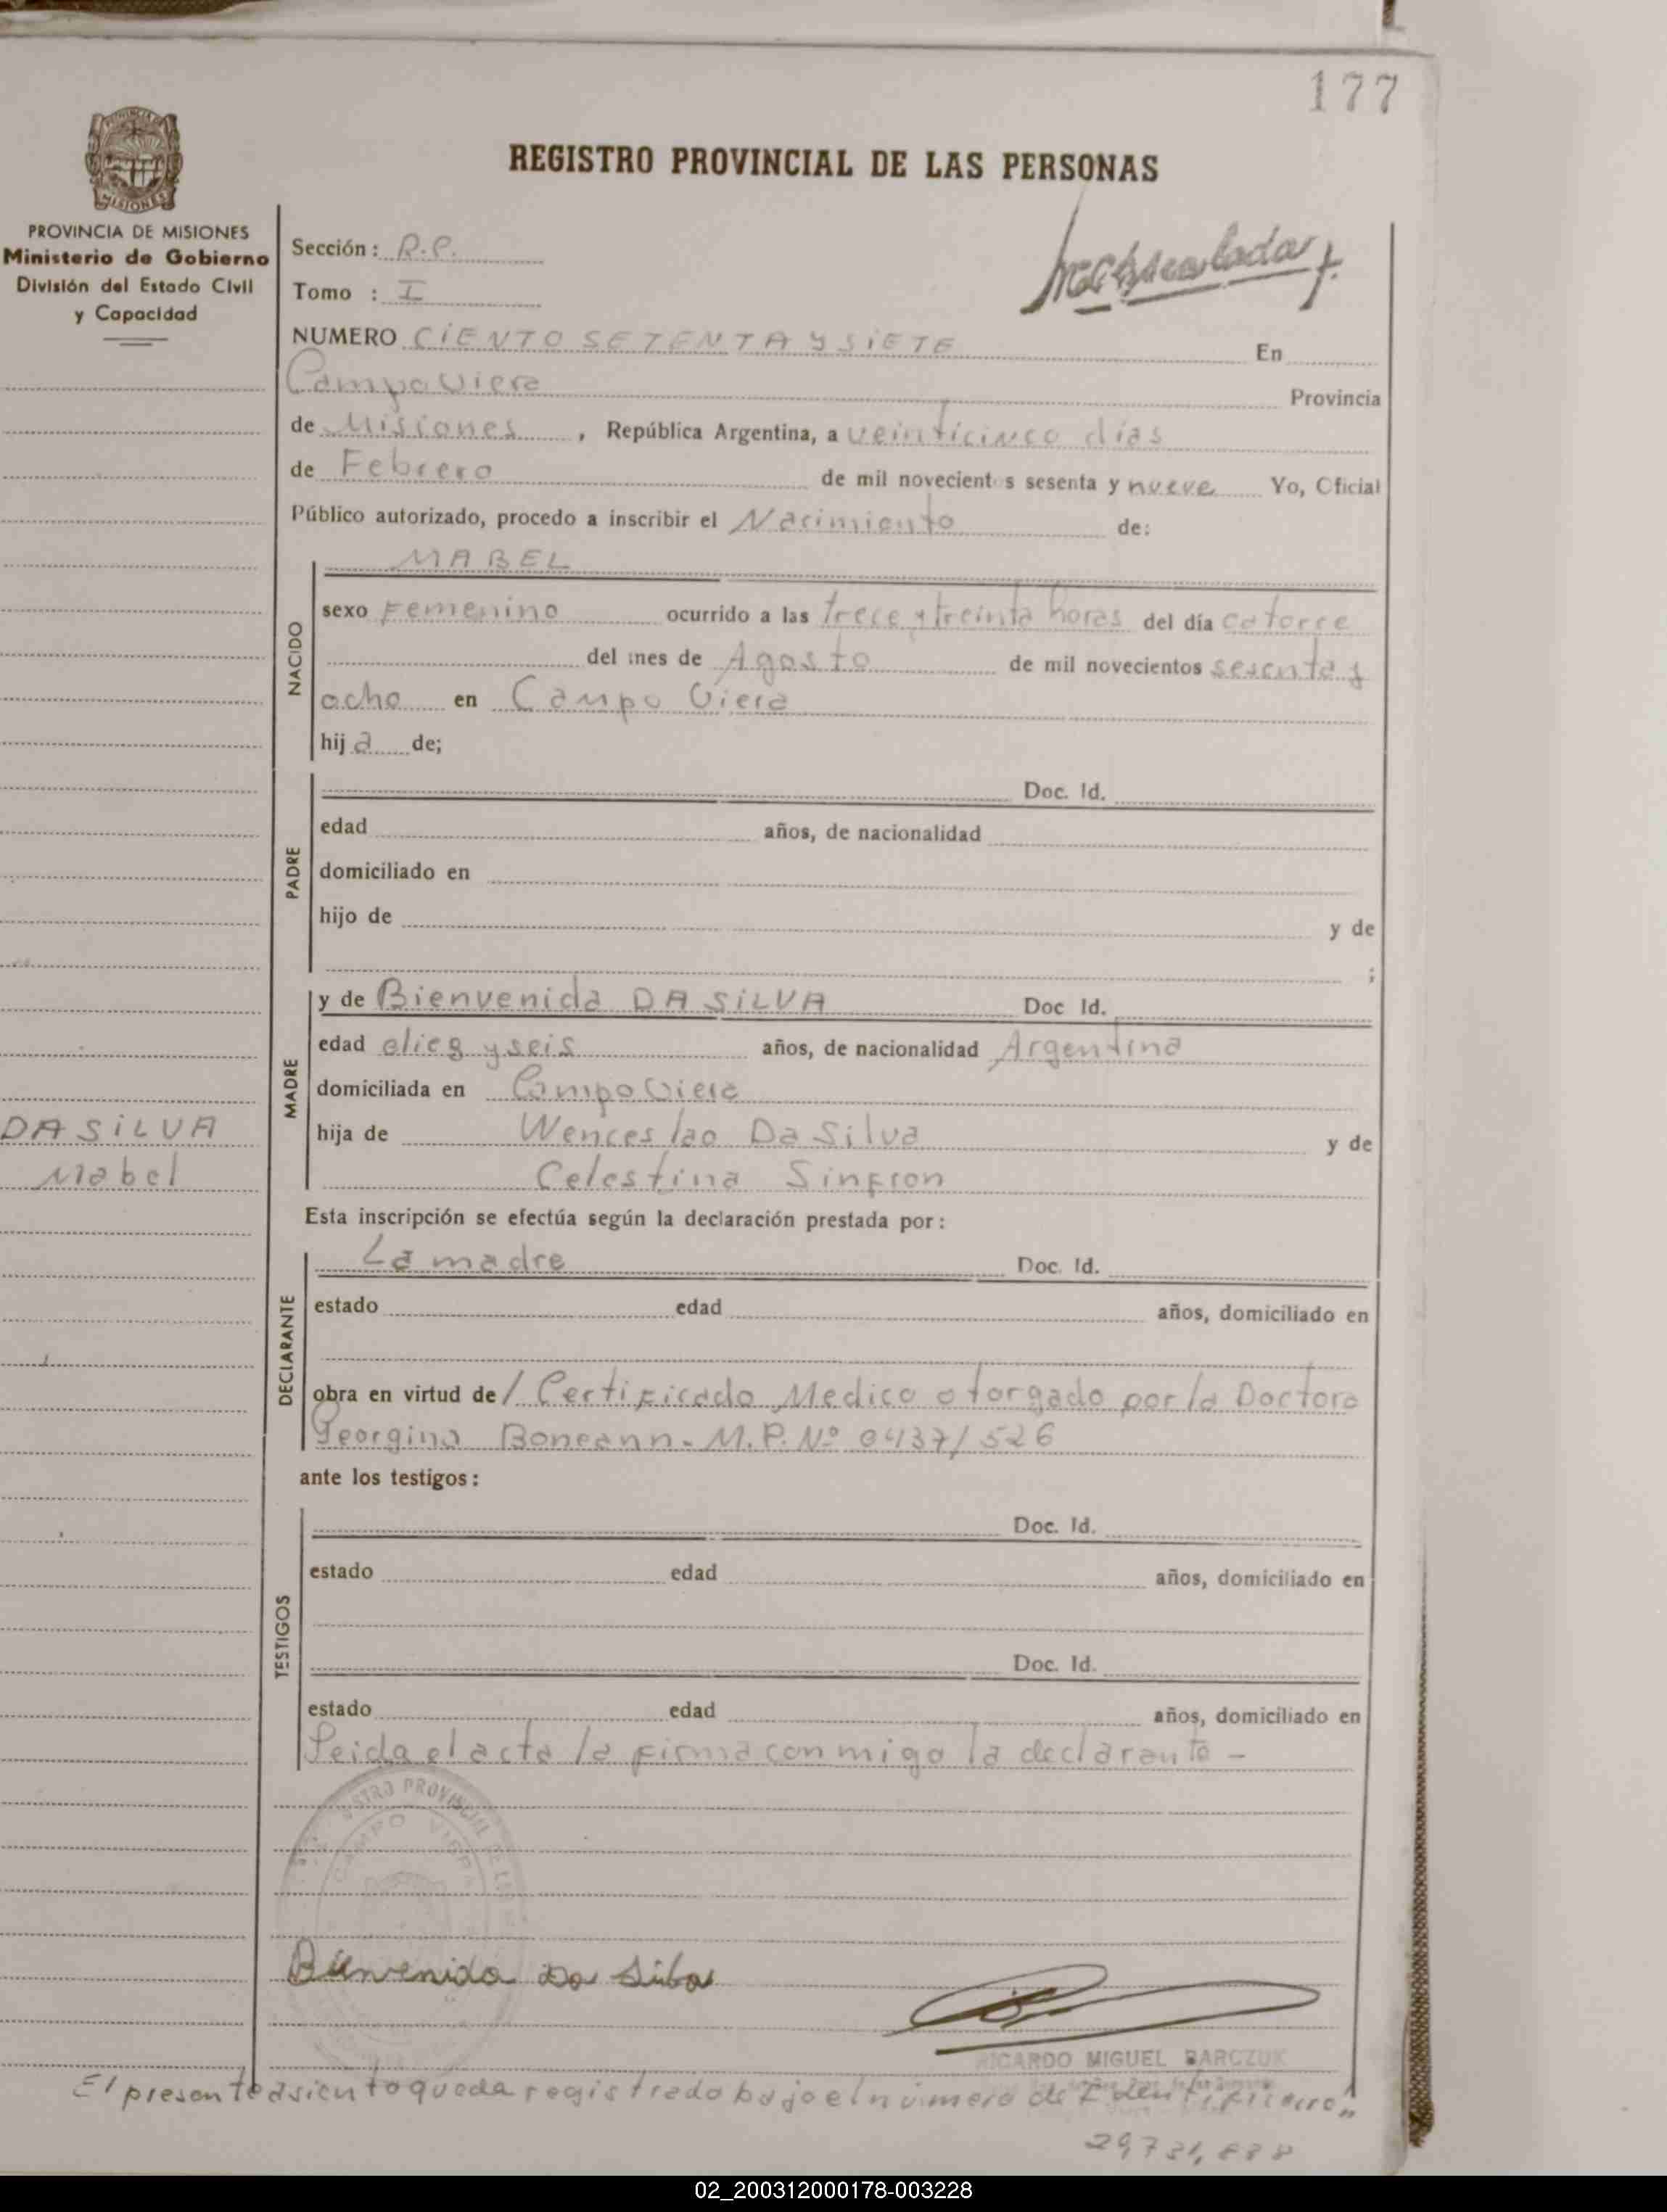 177
PROVINCIA DE MISIONES
Ministerio de Gobierno
División del Estado Civil
y Capacidad
REGISTRO PROVINCIAL DE LAS PERSONAS
Sección: R.P.
Tomo : I
NUMERO CIENTO SETENTA Y SIETE En
Campo Viera Provincia
de Misiones, República Argentina, a veinticinco días
de Febrero de mil novecientos sesenta y nueve Yo, Oficial
Público autorizado, procedo a inscribir el Nacimiento de:
NACIDO
MABEL
sexo Femenino ocurrido a las trece y treinta horas del día catorce
del mes de Agosto de mil novecientos sesenta y
ocho en Campo Viera
hij a de;
PADRE
Doc. Id.
edad años, de nacionalidad
domiciliado en
hijo de y de
;
MADRE
y de Bienvenida DA SILVA Doc Id.
edad dieg y seis años, de nacionalidad Argentina
domiciliada en Campo Viera
hija de Wenceslao Da Silva y de
Celestina Sinfron
DA SILVA
Mabel
Esta inscripción se efectúa según la declaración prestada por:
DECLARANTE
La madre Doc. Id.
estado edad años, domiciliado en
obra en virtud de / Certificado Medico otorgado por la Doctora
Georgina M.P. Nº 0437/526
ante los testigos:
TESTIGOS
Doc. Id.
estado edad años, domiciliado en
Doc. Id.
estado edad años, domiciliado en
Leida el acta la firma conmigo la declarante -
CAMPO VIERA
Bienvenida Da Silba
RICARDO MIGUEL BARCZUK
El presente asiento queda registrado bajo el número de Identificación
02_200312000178-003228